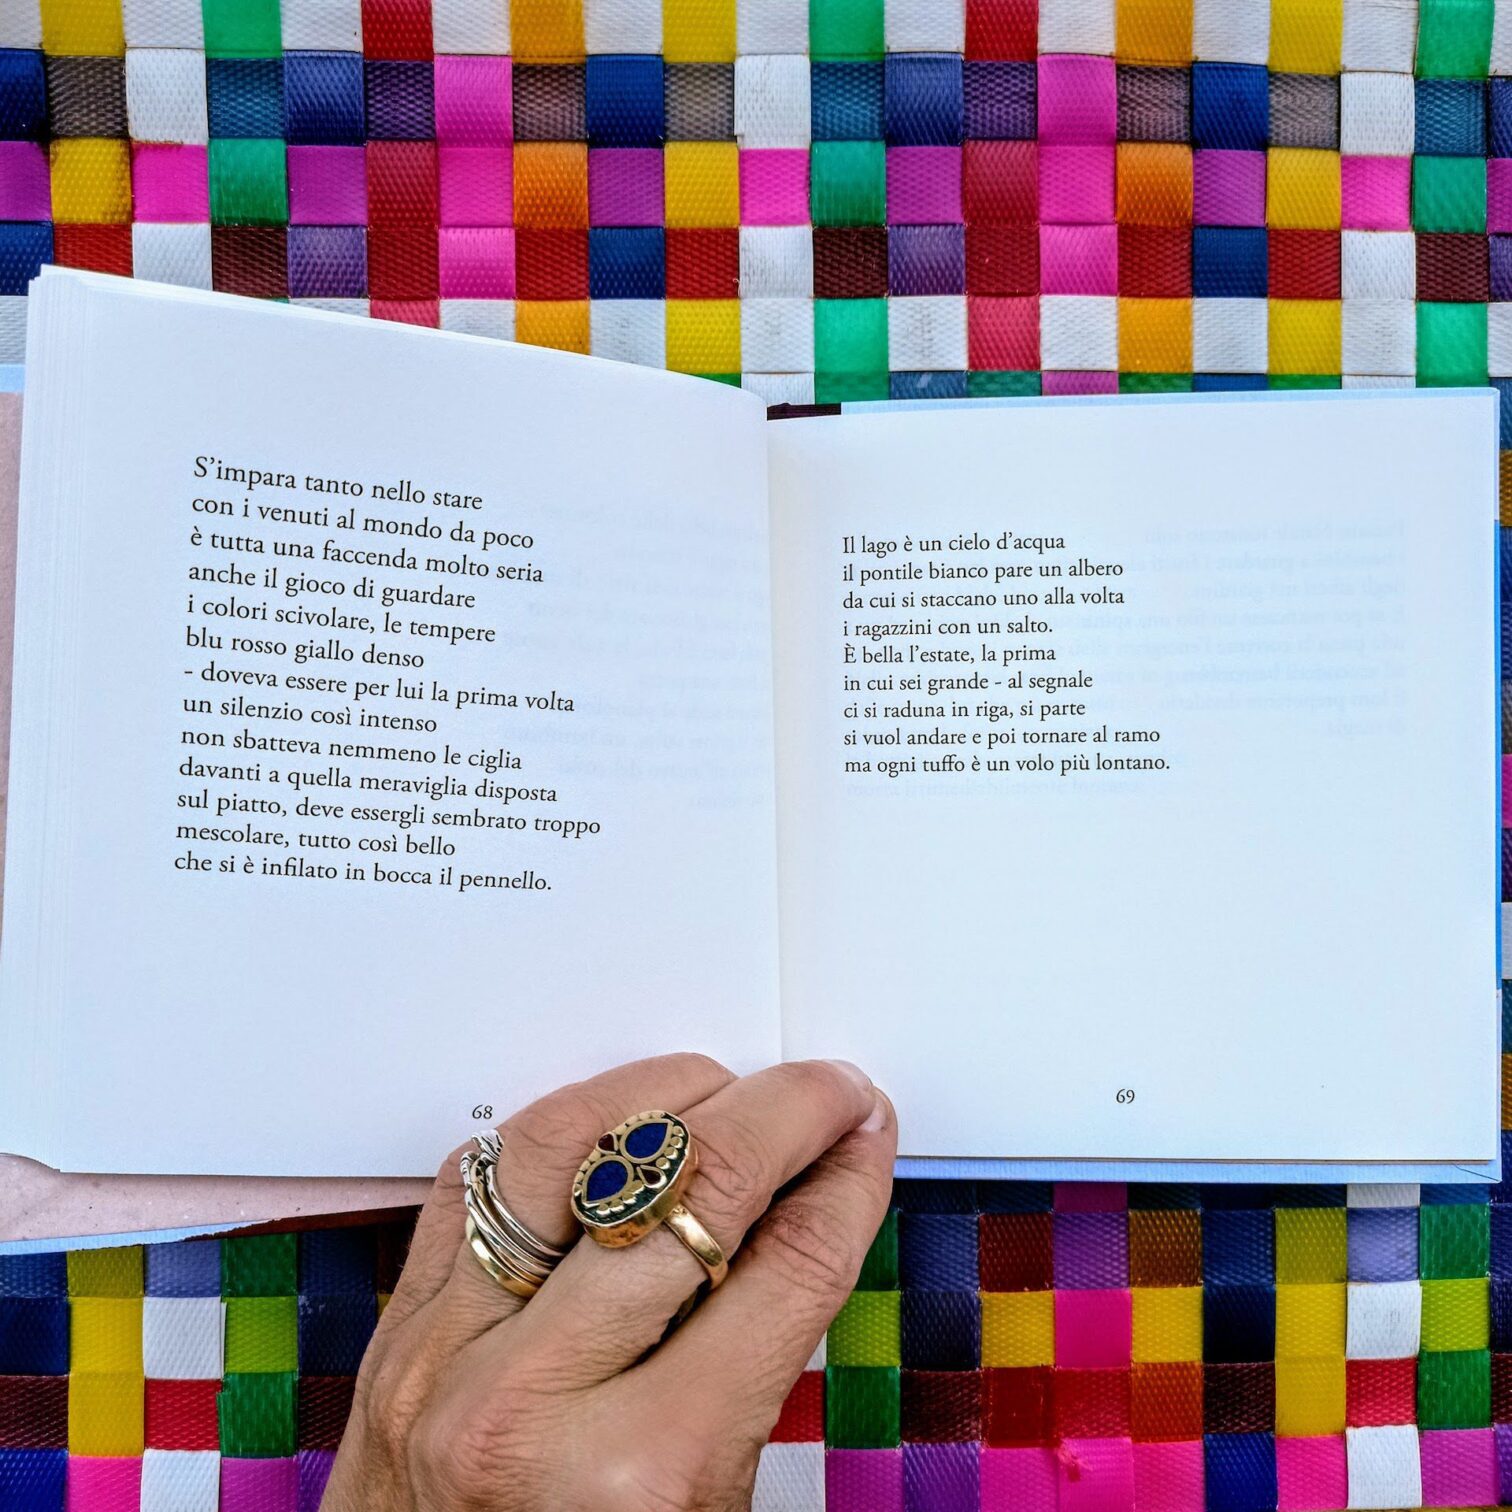 S'impara tanto nello stare
con i venuti al mondo da poco
è tutta una faccenda molto seria
anche il gioco di guardare
i colori scivolare, le tempere
blu rosso giallo denso
- doveva essere per lui la prima volta
un silenzio così intenso
non sbatteva nemmeno le ciglia
davanti a quella meraviglia disposta
sul piatto, deve essergli sembrato troppo
mescolare, tutto così bello
che si è infilato in bocca il pennello.
68
Il lago è un cielo d'acqua
il pontile bianco pare un albero
da cui si staccano uno alla volta
i ragazzini con un salto.
È bella l'estate, la prima
in cui sei grande - al segnale
ci si raduna in riga, si parte
si vuol andare e poi tornare al ramo
ma ogni tuffo è un volo più lontano.
69